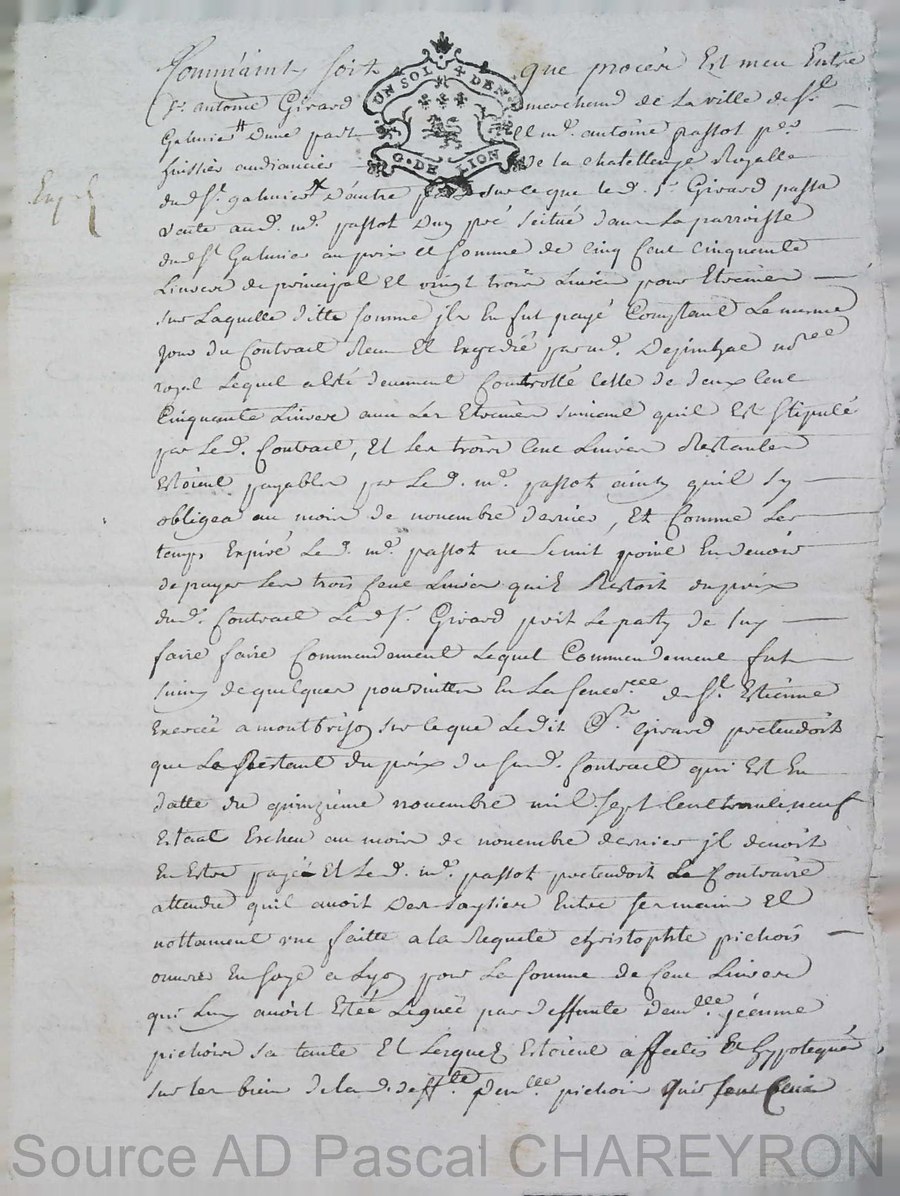 Comme ainsy soit que procès Est meu Entre
Sr. antoine Girard marchand de la ville de St.
Galmier d'une part Et me. antoine passot pr.
huissier audiancier de la chatellenye Royalle
UN SOL 4 DEN.
G. DE LION
dud St. galmier d'autre part sur ce que le d. Sr. Girard passa
vente aud. me. passot d'un pré scitué dans la parroisse
Expé
de St. Galmier au prix et somme de cinq cent cinquante
Livres de principal Et vingt trois Livres pour Etreines
sur Laquelle ditte somme il en fut payé Comptant Le meme
jour du Contract Receu Et Expedié par me. nore
royal Lequel a esté deuement Controllé celle de deux cent
Cinquante Livres avec les Etreines suivant quil Est stipulé
par Led. Contract, Et les trois cent Livres Restantes
Estoient payables par Led. me. passot ainsy quil sy
obligea au mois de novembre dernier, Et Comme Les
temps Expiré Led. me. passot ne se mit point En devoir
de payer Les trois Cent Livres quil Restoit du prix
dud. Contract Led Sr. Girard prit Le party de luy
faire faire Commendement Lequel Commendement fut
suivy de quelques poursuittes En La Senec.ee de St. Estienne
Exercée a montbrison sur ce que Ledit Sr. Girard pretendoit
que Le Restant du prix du susd. Contract qui Est En
datte du quinzième novembre mil sept cent trente neuf
Estant Escheu au mois de novembre dernier il devoit
En Estre payé Et Led. me. passot pretendoit Le Contraire
attendu quil avoit Des saysies Entre ses mains Et
nottament une faitte a la Requete christophle pichois
ouvrier En soye a Lyon pour La somme de Cent Livres
qui Luy avoit Estée Leguée par deffunte demlle. jeanne
pichois sa tante Et Lesquels Estoient affectés Et hypotequés
sur les bien de la d. deffte. Demlle. pichois
Source AD Pascal CHAREYRON